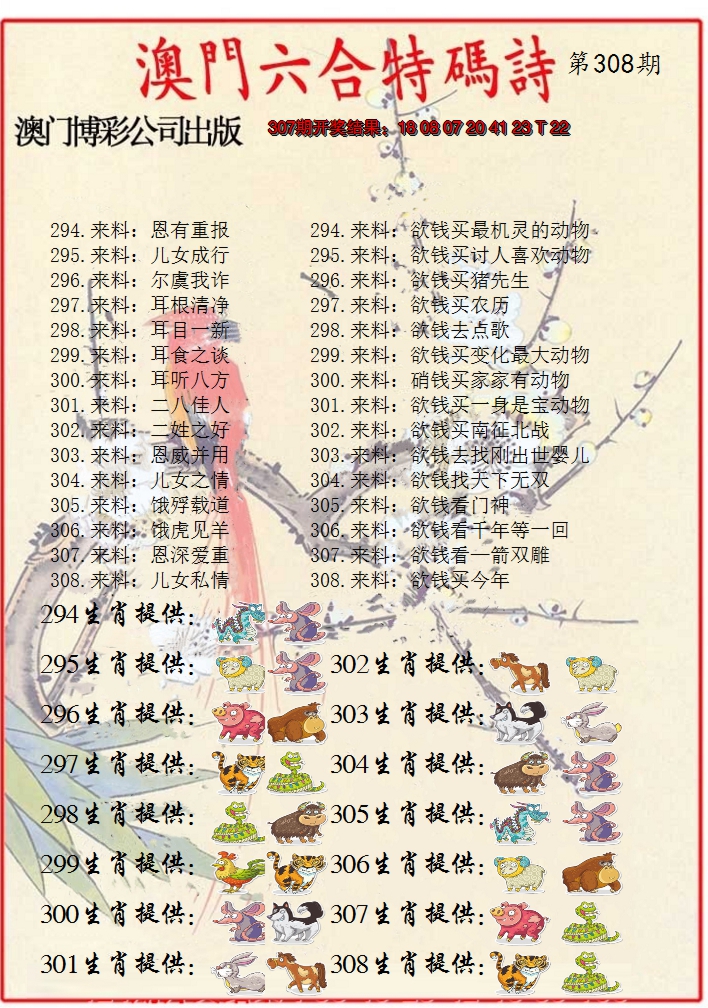 澳門六合特碼詩 第308期
澳门博彩公司出版 307期开奖结果：18 08 07 20 41 23 T 22
294.来料：恩有重报 294.来料：欲钱买最机灵的动物
295.来料：儿女成行 295.来料：欲钱买讨人喜欢动物
296.来料：尔虞我诈 296.来料：欲钱买猪先生
297.来料：耳根清净 297.来料：欲钱买农历
298.来料：耳目一新 298.来料：欲钱去点歌
299.来料：耳食之谈 299.来料：欲钱买变化最大动物
300.来料：耳听八方 300.来料：硝钱买家家有动物
301.来料：二八佳人 301.来料：欲钱买一身是宝动物
302.来料：二姓之好 302.来料：欲钱买南征北战
303.来料：恩威并用 303.来料：欲钱去找刚出世婴儿
304.来料：儿女之情 304.来料：欲钱找天下无双
305.来料：饿殍载道 305.来料：欲钱看门神
306.来料：饿虎见羊 306.来料：欲钱看千年等一回
307.来料：恩深爱重 307.来料：欲钱看一箭双雕
308.来料：儿女私情 308.来料：欲钱买今年
294生肖提供：
295生肖提供： 302生肖提供：
296生肖提供： 303生肖提供：
297生肖提供： 304生肖提供：
298生肖提供： 305生肖提供：
299生肖提供： 306生肖提供：
300生肖提供： 307生肖提供：
301生肖提供： 308生肖提供：